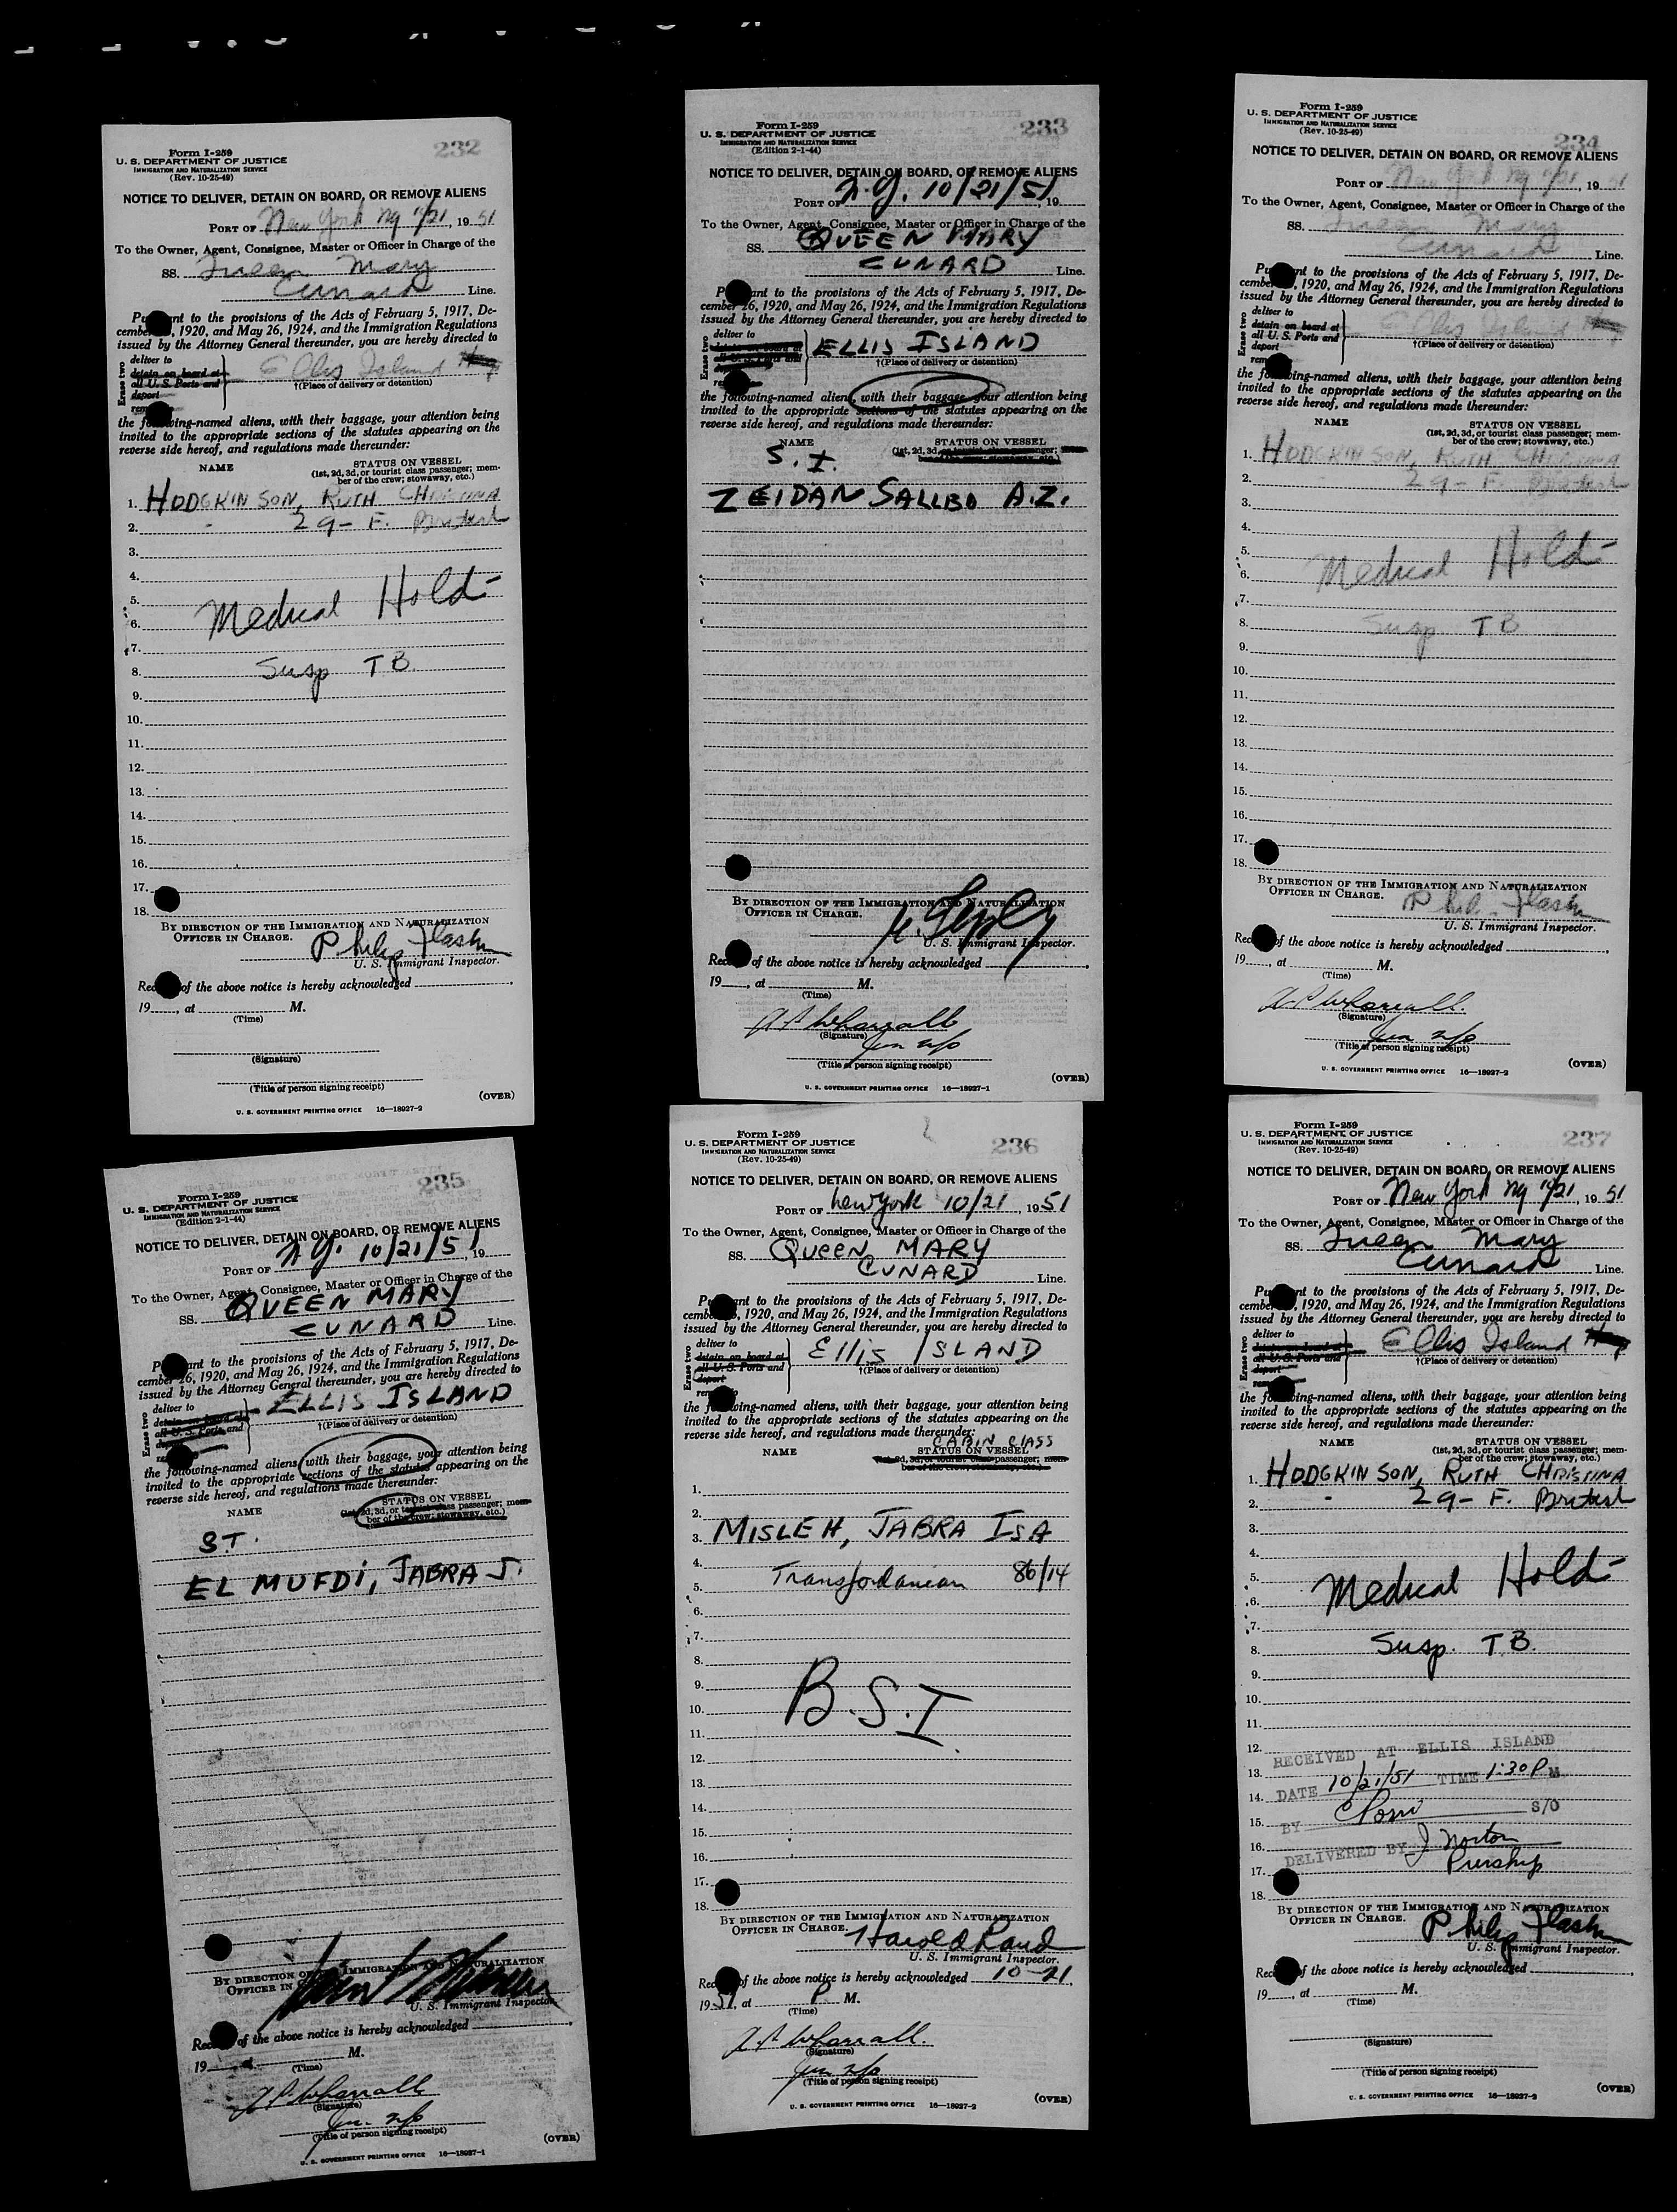 Form I-259
U. S. DEPARTMENT OF JUSTICE
IMMIGRATION AND NATURALIZATION SERVICE
(Rev. 10-25-49)
232
NOTICE TO DELIVER, DETAIN ON BOARD, OR REMOVE ALIENS
PORT OF New York NY 10/21, 1951
To the Owner, Agent, Consignee, Master or Officer in Charge of the
SS. Queen Mary
Cunard Line.
nt to the provisions of the Acts of February 5, 1917, De-
cember , 1920, and May 26, 1924, and the Immigration Regulations
issued by the Attorney General thereunder, you are hereby directed to
Erase two
deliver to
detain on board at
all U. S. Ports and
deport
Ellis Island
†(Place of delivery or detention)
the following-named aliens, with their baggage, your attention being
invited to the appropriate sections of the statutes appearing on the
reverse side hereof, and regulations made thereunder:
NAME STATUS ON VESSEL
(1st, 2d, 3d, or tourist class passenger; mem-
ber of the crew; stowaway, etc.)
1. HODGKINSON, RUTH CHRISTINA
2. - 29 - F. British
3.
4.
5.
6. Medical Hold
7.
8. Susp TB.
9.
10.
11.
12.
13.
14.
15.
16.
17.
18.
BY DIRECTION OF THE IMMIGRATION AND NATURALIZATION
OFFICER IN CHARGE.
Philip
U. S. Immigrant Inspector.
of the above notice is hereby acknowledged
19 , at M.
(Time)
(Signature)
(Title of person signing receipt)
(OVER)
U. S. GOVERNMENT PRINTING OFFICE 16—18927-2
Form I-259
U. S. DEPARTMENT OF JUSTICE
IMMIGRATION AND NATURALIZATION SERVICE
(Edition 2-1-44)
233
NOTICE TO DELIVER, DETAIN ON BOARD, OR REMOVE ALIENS
PORT OF N.Y. 10/21/51, 19
To the Owner, Agent, Consignee, Master or Officer in Charge of the
SS. QUEEN MARY
CUNARD Line.
ant to the provisions of the Acts of February 5, 1917, De-
cember 26, 1920, and May 26, 1924, and the Immigration Regulations
issued by the Attorney General thereunder, you are hereby directed to
Erase two
deliver to
ELLIS ISLAND
†(Place of delivery or detention)
the following-named aliens, with their baggage, your attention being
invited to the appropriate sections of the statutes appearing on the
reverse side hereof, and regulations made thereunder:
NAME STATUS ON VESSEL
(1st, 2d, 3d, or tourist class passenger; mem-
ber of the crew; stowaway, etc.)
S. I.
ZEIDAN SALLBO A.Z.
BY DIRECTION OF THE IMMIGRATION AND NATURALIZATION
OFFICER IN CHARGE.
U. S. Immigrant Inspector.
of the above notice is hereby acknowledged
19 , at M.
(Time)
(Signature)
(Title of person signing receipt)
(OVER)
U. S. GOVERNMENT PRINTING OFFICE 16—18927-1
Form I-259
U. S. DEPARTMENT OF JUSTICE
IMMIGRATION AND NATURALIZATION SERVICE
(Rev. 10-25-49)
234
NOTICE TO DELIVER, DETAIN ON BOARD, OR REMOVE ALIENS
PORT OF New York NY 10/21, 1951
To the Owner, Agent, Consignee, Master or Officer in Charge of the
SS. Queen Mary
Cunard Line.
nt to the provisions of the Acts of February 5, 1917, De-
cember , 1920, and May 26, 1924, and the Immigration Regulations
issued by the Attorney General thereunder, you are hereby directed to
Erase two
deliver to
detain on board at
all U. S. Ports and
deport
Ellis Island
†(Place of delivery or detention)
the following-named aliens, with their baggage, your attention being
invited to the appropriate sections of the statutes appearing on the
reverse side hereof, and regulations made thereunder:
NAME STATUS ON VESSEL
(1st, 2d, 3d, or tourist class passenger; mem-
ber of the crew; stowaway, etc.)
1. HODGKINSON, RUTH CHRISTINA
2. - 29 - F. British
3.
4.
5.
6. Medical Hold
7.
8. Susp TB
9.
10.
11.
12.
13.
14.
15.
16.
17.
18.
BY DIRECTION OF THE IMMIGRATION AND NATURALIZATION
OFFICER IN CHARGE.
Philip
U. S. Immigrant Inspector.
of the above notice is hereby acknowledged
19 , at M.
(Time)
(Signature)
(Title of person signing receipt)
(OVER)
U. S. GOVERNMENT PRINTING OFFICE 16—18927-2
Form I-259
U. S. DEPARTMENT OF JUSTICE
IMMIGRATION AND NATURALIZATION SERVICE
(Edition 2-1-44)
235
NOTICE TO DELIVER, DETAIN ON BOARD, OR REMOVE ALIENS
PORT OF N.Y. 10/21/51, 19
To the Owner, Agent, Consignee, Master or Officer in Charge of the
SS. QUEEN MARY
CUNARD Line.
ant to the provisions of the Acts of February 5, 1917, De-
cember 26, 1920, and May 26, 1924, and the Immigration Regulations
issued by the Attorney General thereunder, you are hereby directed to
Erase two
deliver to
detain on board at
all U. S. Ports and
ELLIS ISLAND
†(Place of delivery or detention)
the following-named aliens, with their baggage, your attention being
invited to the appropriate sections of the statutes appearing on the
reverse side hereof, and regulations made thereunder:
NAME STATUS ON VESSEL
(1st, 2d, 3d, or tourist class passenger; mem-
ber of the crew; stowaway, etc.)
S.I.
EL MUFDI, JABRA J.
BY DIRECTION OF THE IMMIGRATION AND NATURALIZATION
OFFICER IN
U. S. Immigrant Inspector.
of the above notice is hereby acknowledged
19 M.
(Time)
(Signature)
(Title of person signing receipt)
(OVER)
U. S. GOVERNMENT PRINTING OFFICE 16—18927-1
Form I-259
U. S. DEPARTMENT OF JUSTICE
IMMIGRATION AND NATURALIZATION SERVICE
(Rev. 10-25-49)
236
NOTICE TO DELIVER, DETAIN ON BOARD, OR REMOVE ALIENS
PORT OF New York 10/21, 1951
To the Owner, Agent, Consignee, Master or Officer in Charge of the
SS. QUEEN MARY
CUNARD Line.
nt to the provisions of the Acts of February 5, 1917, De-
cember , 1920, and May 26, 1924, and the Immigration Regulations
issued by the Attorney General thereunder, you are hereby directed to
Erase two
deliver to
detain on board at
all U. S. Ports and
deport
Ellis ISLAND
†(Place of delivery or detention)
the following-named aliens, with their baggage, your attention being
invited to the appropriate sections of the statutes appearing on the
reverse side hereof, and regulations made thereunder:
CABIN CLASS
NAME STATUS ON VESSEL
(1st, 2d, 3d, or tourist class passenger; mem-
ber of the crew; stowaway, etc.)
1.
2.
3. MISLEH, JABRA ISA
4.
5. Transjordanian 86/14
6.
7.
8.
9.
10. B.S.I.
11.
12.
13.
14.
15.
16.
17.
18.
BY DIRECTION OF THE IMMIGRATION AND NATURALIZATION
OFFICER IN CHARGE.
Harold
U. S. Immigrant Inspector.
of the above notice is hereby acknowledged 10-21,
1951, at P M.
(Time)
(Signature)
(Title of person signing receipt)
(OVER)
U. S. GOVERNMENT PRINTING OFFICE 16—18927-2
Form I-259
U. S. DEPARTMENT OF JUSTICE
IMMIGRATION AND NATURALIZATION SERVICE
(Rev. 10-25-49)
237
NOTICE TO DELIVER, DETAIN ON BOARD, OR REMOVE ALIENS
PORT OF New York NY 10/21, 1951
To the Owner, Agent, Consignee, Master or Officer in Charge of the
SS. Queen Mary
Cunard Line.
nt to the provisions of the Acts of February 5, 1917, De-
cember , 1920, and May 26, 1924, and the Immigration Regulations
issued by the Attorney General thereunder, you are hereby directed to
Erase two
deliver to
all U. S. Ports and
deport
Ellis Island
†(Place of delivery or detention)
the following-named aliens, with their baggage, your attention being
invited to the appropriate sections of the statutes appearing on the
reverse side hereof, and regulations made thereunder:
NAME STATUS ON VESSEL
(1st, 2d, 3d, or tourist class passenger; mem-
ber of the crew; stowaway, etc.)
1. HODGKINSON, RUTH CHRISTINA
2. - 29 - F. British
3.
4.
5.
6. Medical Hold
7.
8. Susp. TB
9.
10.
11.
12. RECEIVED AT ELLIS ISLAND
13.
14. DATE 10/21/51 TIME 1:30 PM
15. BY S/O
16. DELIVERED BY J Norton
17.
18.
BY DIRECTION OF THE IMMIGRATION AND NATURALIZATION
OFFICER IN CHARGE.
Philip
U. S. Immigrant Inspector.
of the above notice is hereby acknowledged
19 , at M.
(Time)
(Signature)
(Title of person signing receipt)
(OVER)
U. S. GOVERNMENT PRINTING OFFICE 16—18927-2